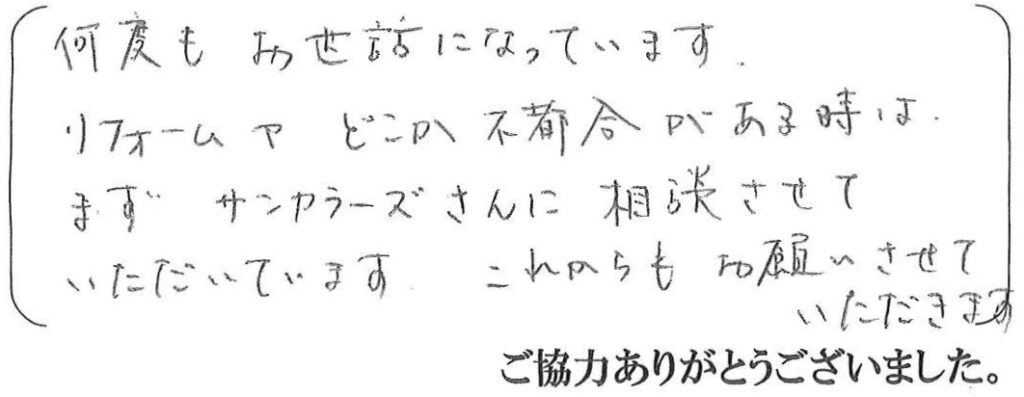 何度もお世話になっています.
リフォームや どこか不都合がある時は.
まず サンカラーズさんに相談させて
いただいています. これからもお願いさせて
いただきます
ご協力ありがとうございました。